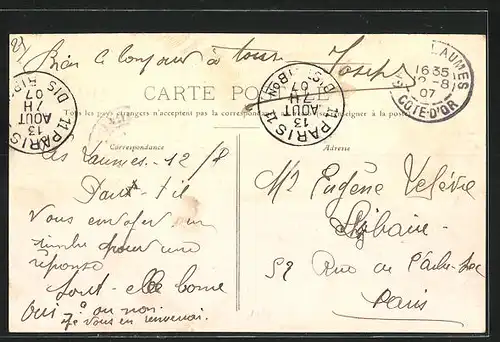 Bien le bonjour à tous Joseph
LAUMES
16 35
12-8
07
CÔTE-D'OR
PARIS 11
7H
13
AOUT
07
DISTRIB
11 PARIS 11
7H
13
AOUT
07
DISTRIBON
CARTE POSTALE
Tous les pays étrangers n'acceptent pas la correspondance au se renseigner à la poste
Correspondance
Adresse
Les Laumes - 12/8
Faut-il
vous envoyer un
timbre pour une
réponse
Sont-elle bonne
oui? ou non.
je vous en renverrai.
Mr Eugène Lefèvre
59 Rue de l'Arbre-Sec
Paris